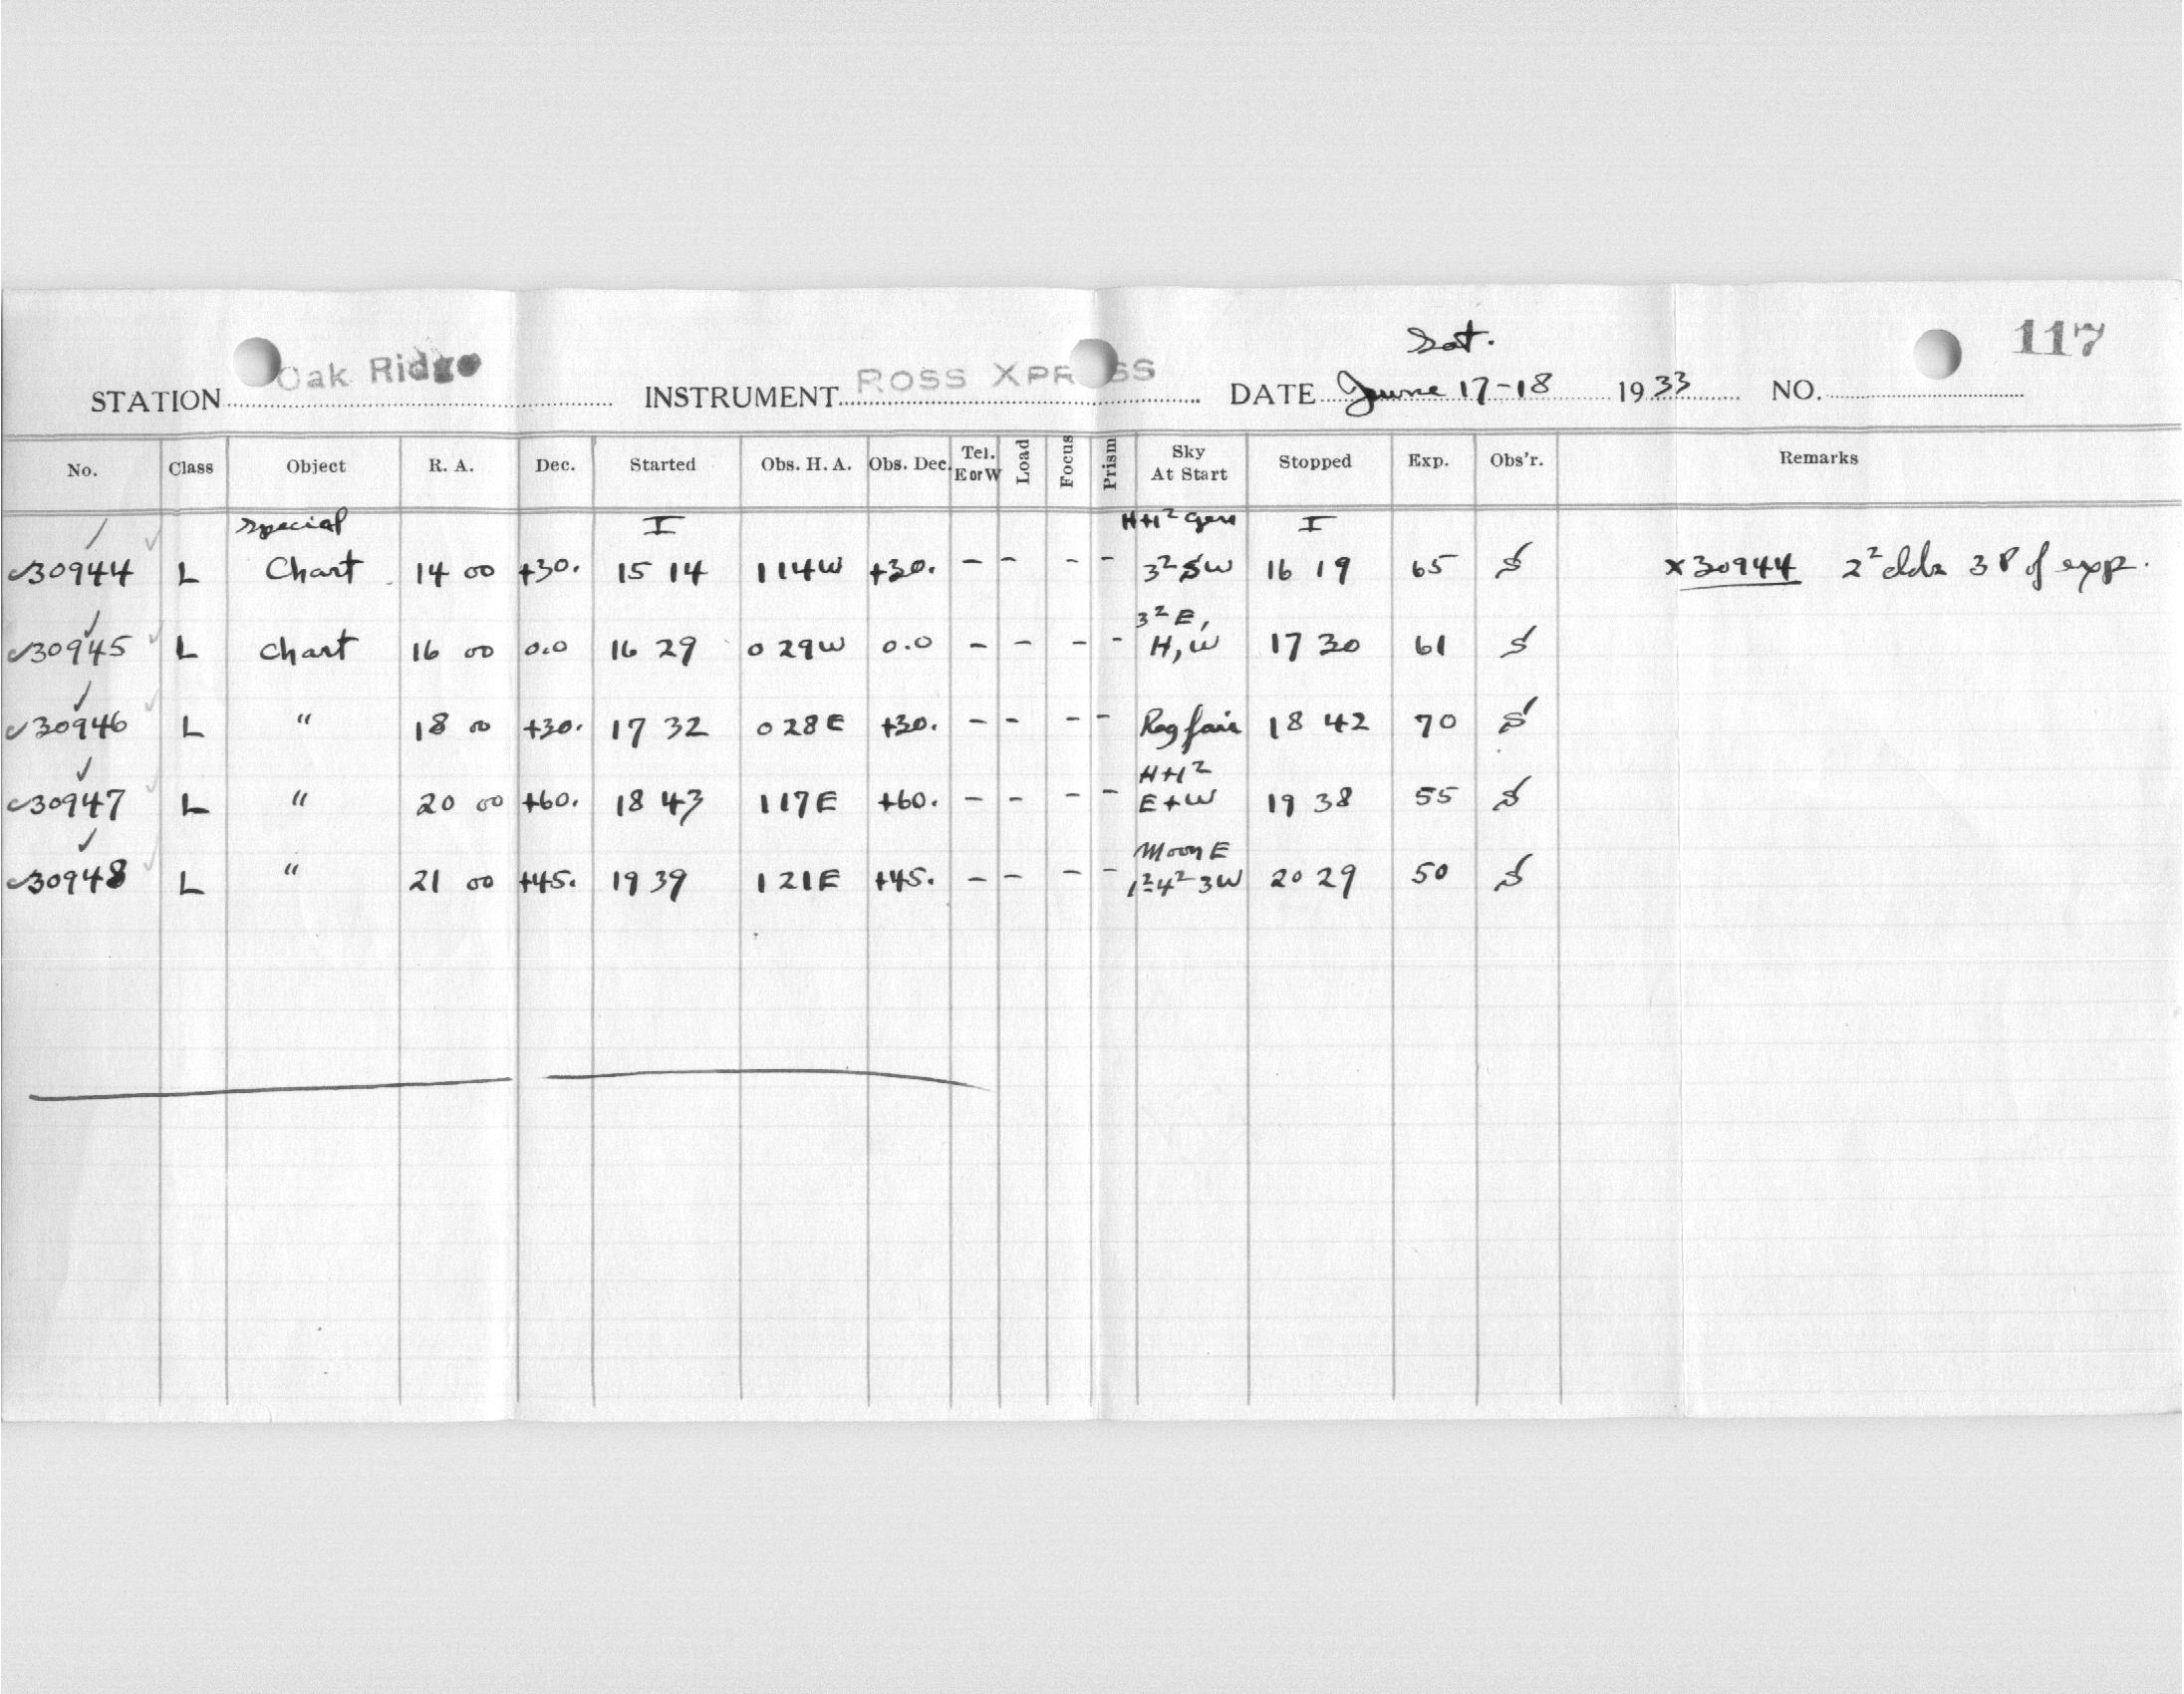 Sat.
117
STATION Oak Ridge INSTRUMENT ROSS XPRESS DATE June 17-18 1933 NO.
No. Class Object R. A. Dec. Started Obs. H. A. Obs. Dec. Tel. E or W Load Focus Prism Sky At Start Stopped Exp. Obs'r. Remarks
special I H+1² Gen I
30944 L Chart 14 00 +30. 15 14 1 14W +30. - - - - 3² SW 16 19 65 S x30944 2² clds 3 P of exp.
3² E,
30945 L Chart 16 00 0.0 16 29 0 29W 0.0 - - - - H, W 17 30 61 S
30946 L " 18 00 +30. 17 32 0 28E +30. - - - - Reg fair 18 42 70 S
H+1²
30947 L " 20 00 +60. 18 43 1 17E +60. - - - - E+W 19 38 55 S
Moon E
30948 L " 21 00 +45. 19 39 1 21E +45. - - - - 1²-4² 3W 20 29 50 S